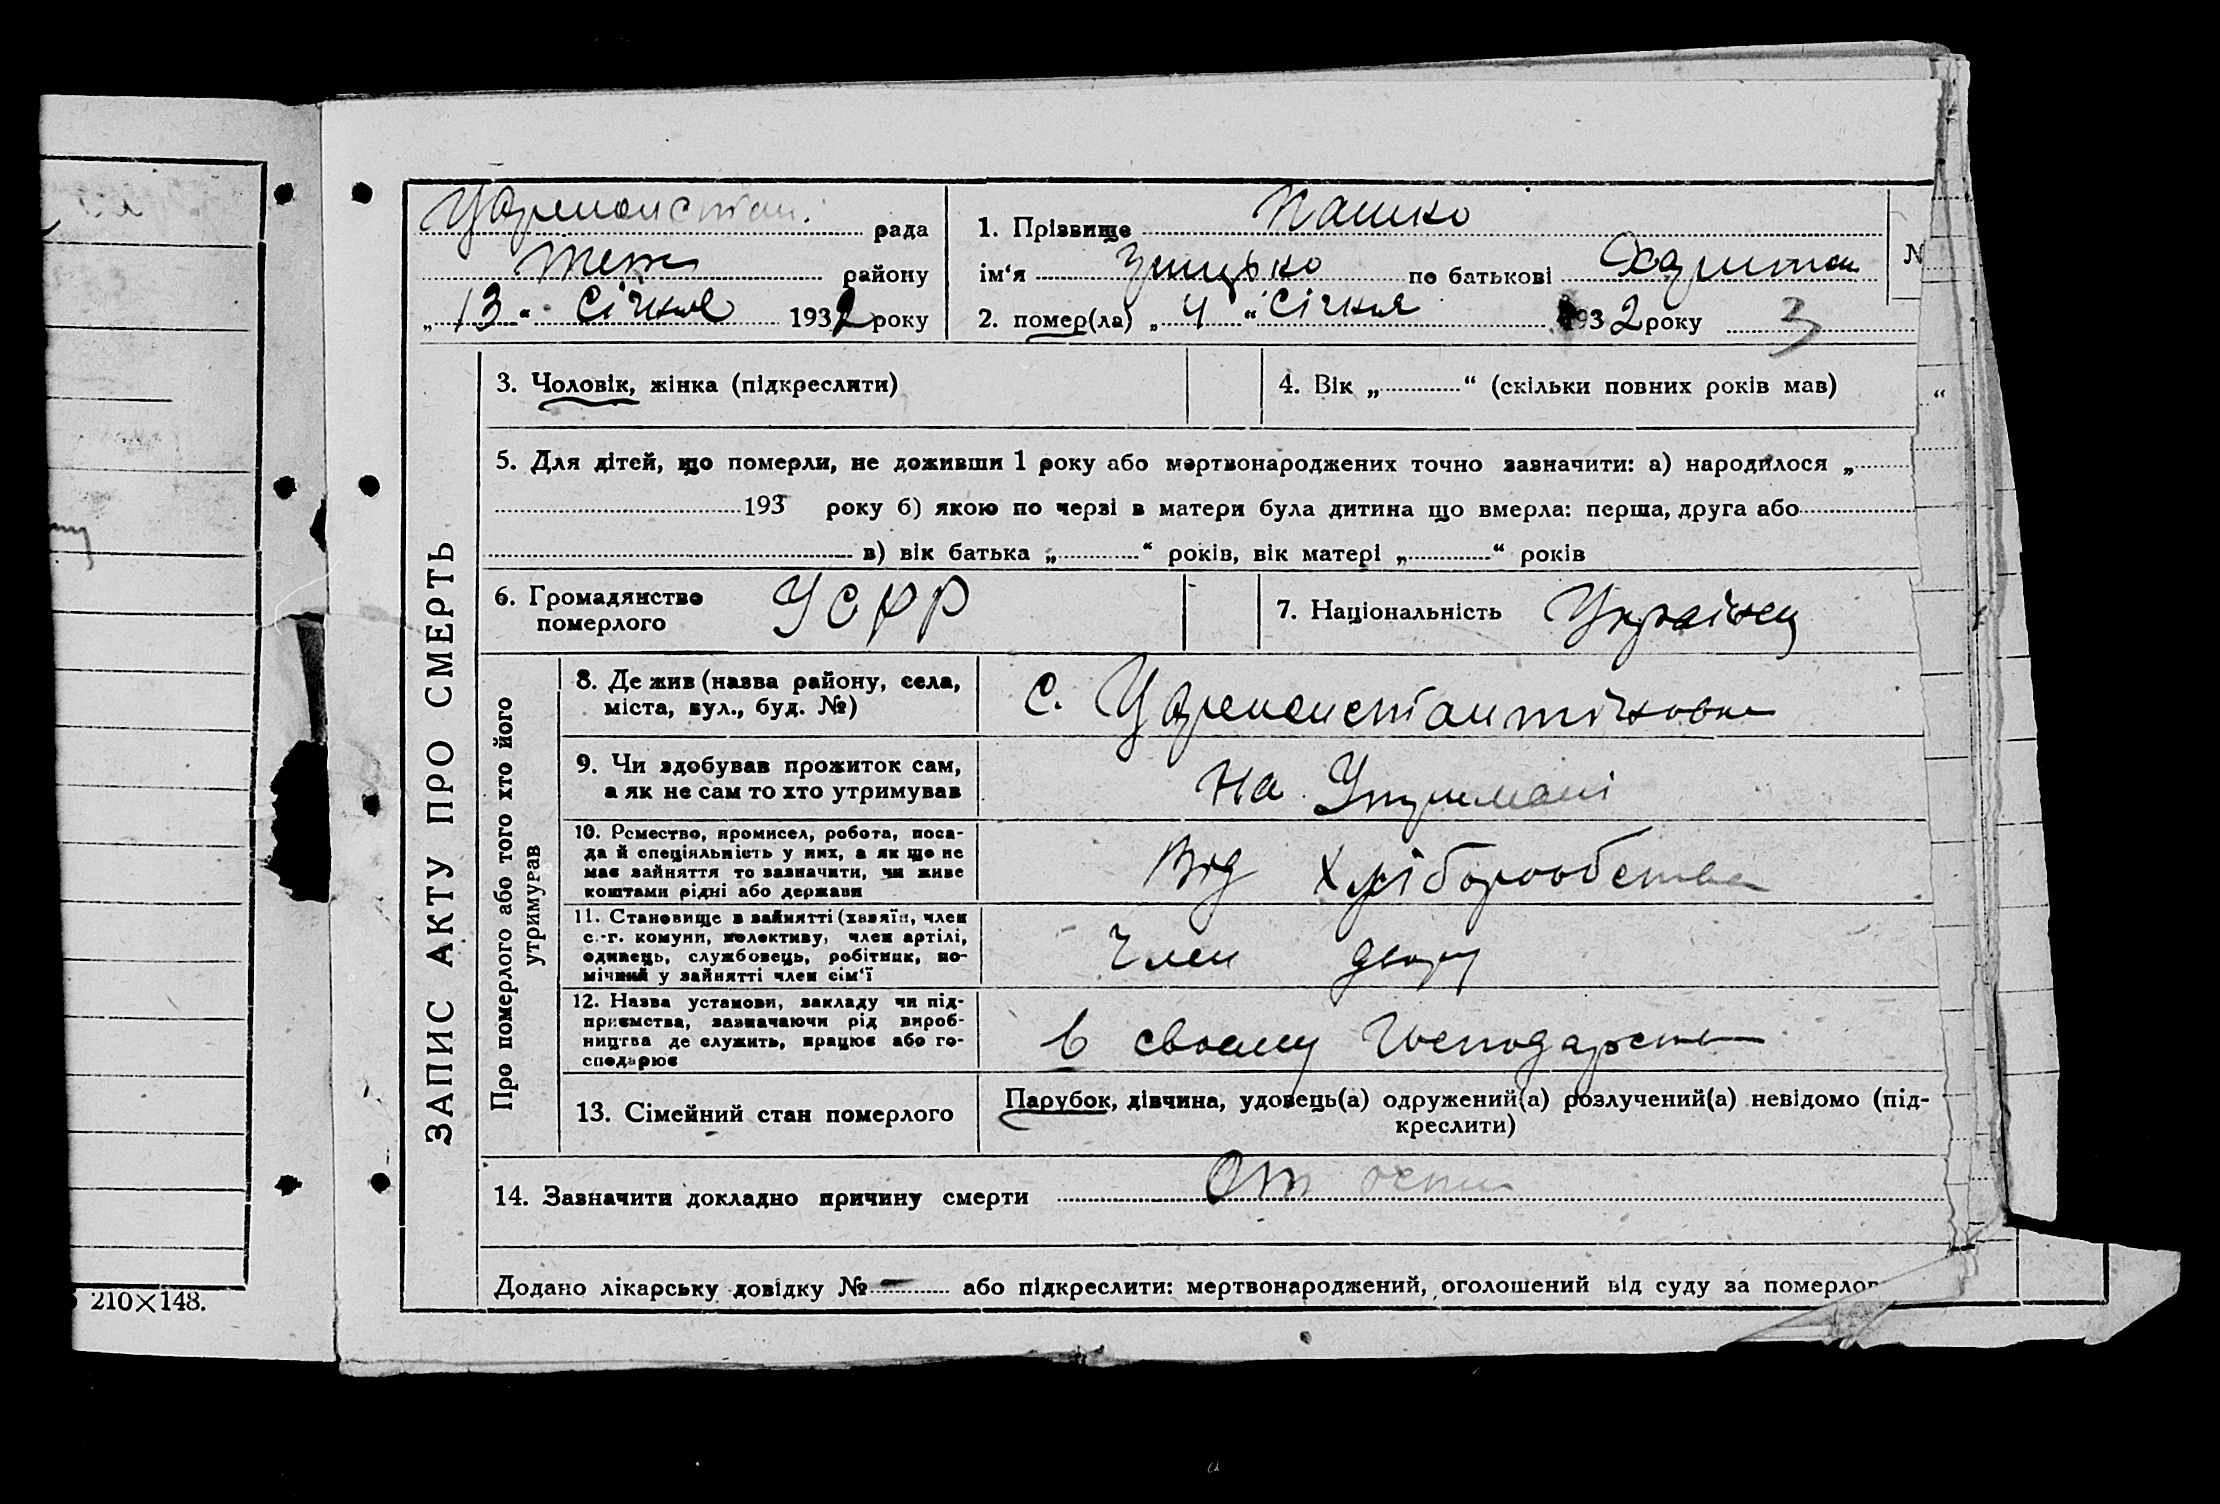 рада
району
„13“ Січня 1932 року
1. Прізвище Пашко
ім‘я Грицько по батькові
2. помер(ла) „4“ Січня 1932 року 3
N
ЗАПИС АКТУ ПРО СМЕРТЬ
3. Чоловік, жінка (підкреслити)
4. Вік „ “ (скільки повних років мав)
5. Для дітей, що померли, не доживши 1 року або мертвонароджених точно зазначити: а) народилося „
193 року б) якою по черзі в матери була дитина що вмерла: перша, друга або
в) вік батька „ “ років, вік матері „ “ років
6. Громадянство
померлого
УСРР
7. Національність Українец
Про померлого або того хто його
утримував
8. Де жив (назва району, села,
міста, вул., буд. №)
с. Цареконстантіновка
9. Чи здобував прожиток сам,
а як не сам то хто утримував
На Утримані
10. Ремество, промисел, робота, поса-
да й спеціяльність у них, а як що не
має зайняття то зазначити, чи живе
коштами рідні або держави
Від Хліборобства
11. Становище в зайнятті (хазяїн, член
с.-г. комуни, колективу, член артілі,
одинець, службовець, робітник, по-
мічний у зайнятті член сім‘ї
Член двору
12. Назва установи, закладу чи під-
приємства, зазначаючи рід вироб-
ництва де служить, працює або го-
сподарює
в своєму Господарстві
13. Сімейний стан померлого
Парубок, дівчина, удовець(а) одружений(а) розлучений(а) невідомо (під-
креслити)
14. Зазначити докладно причину смерти От
Додано лікарську довідку № — або підкреслити: мертвонароджений, оголошений від суду за померлог
210×148.